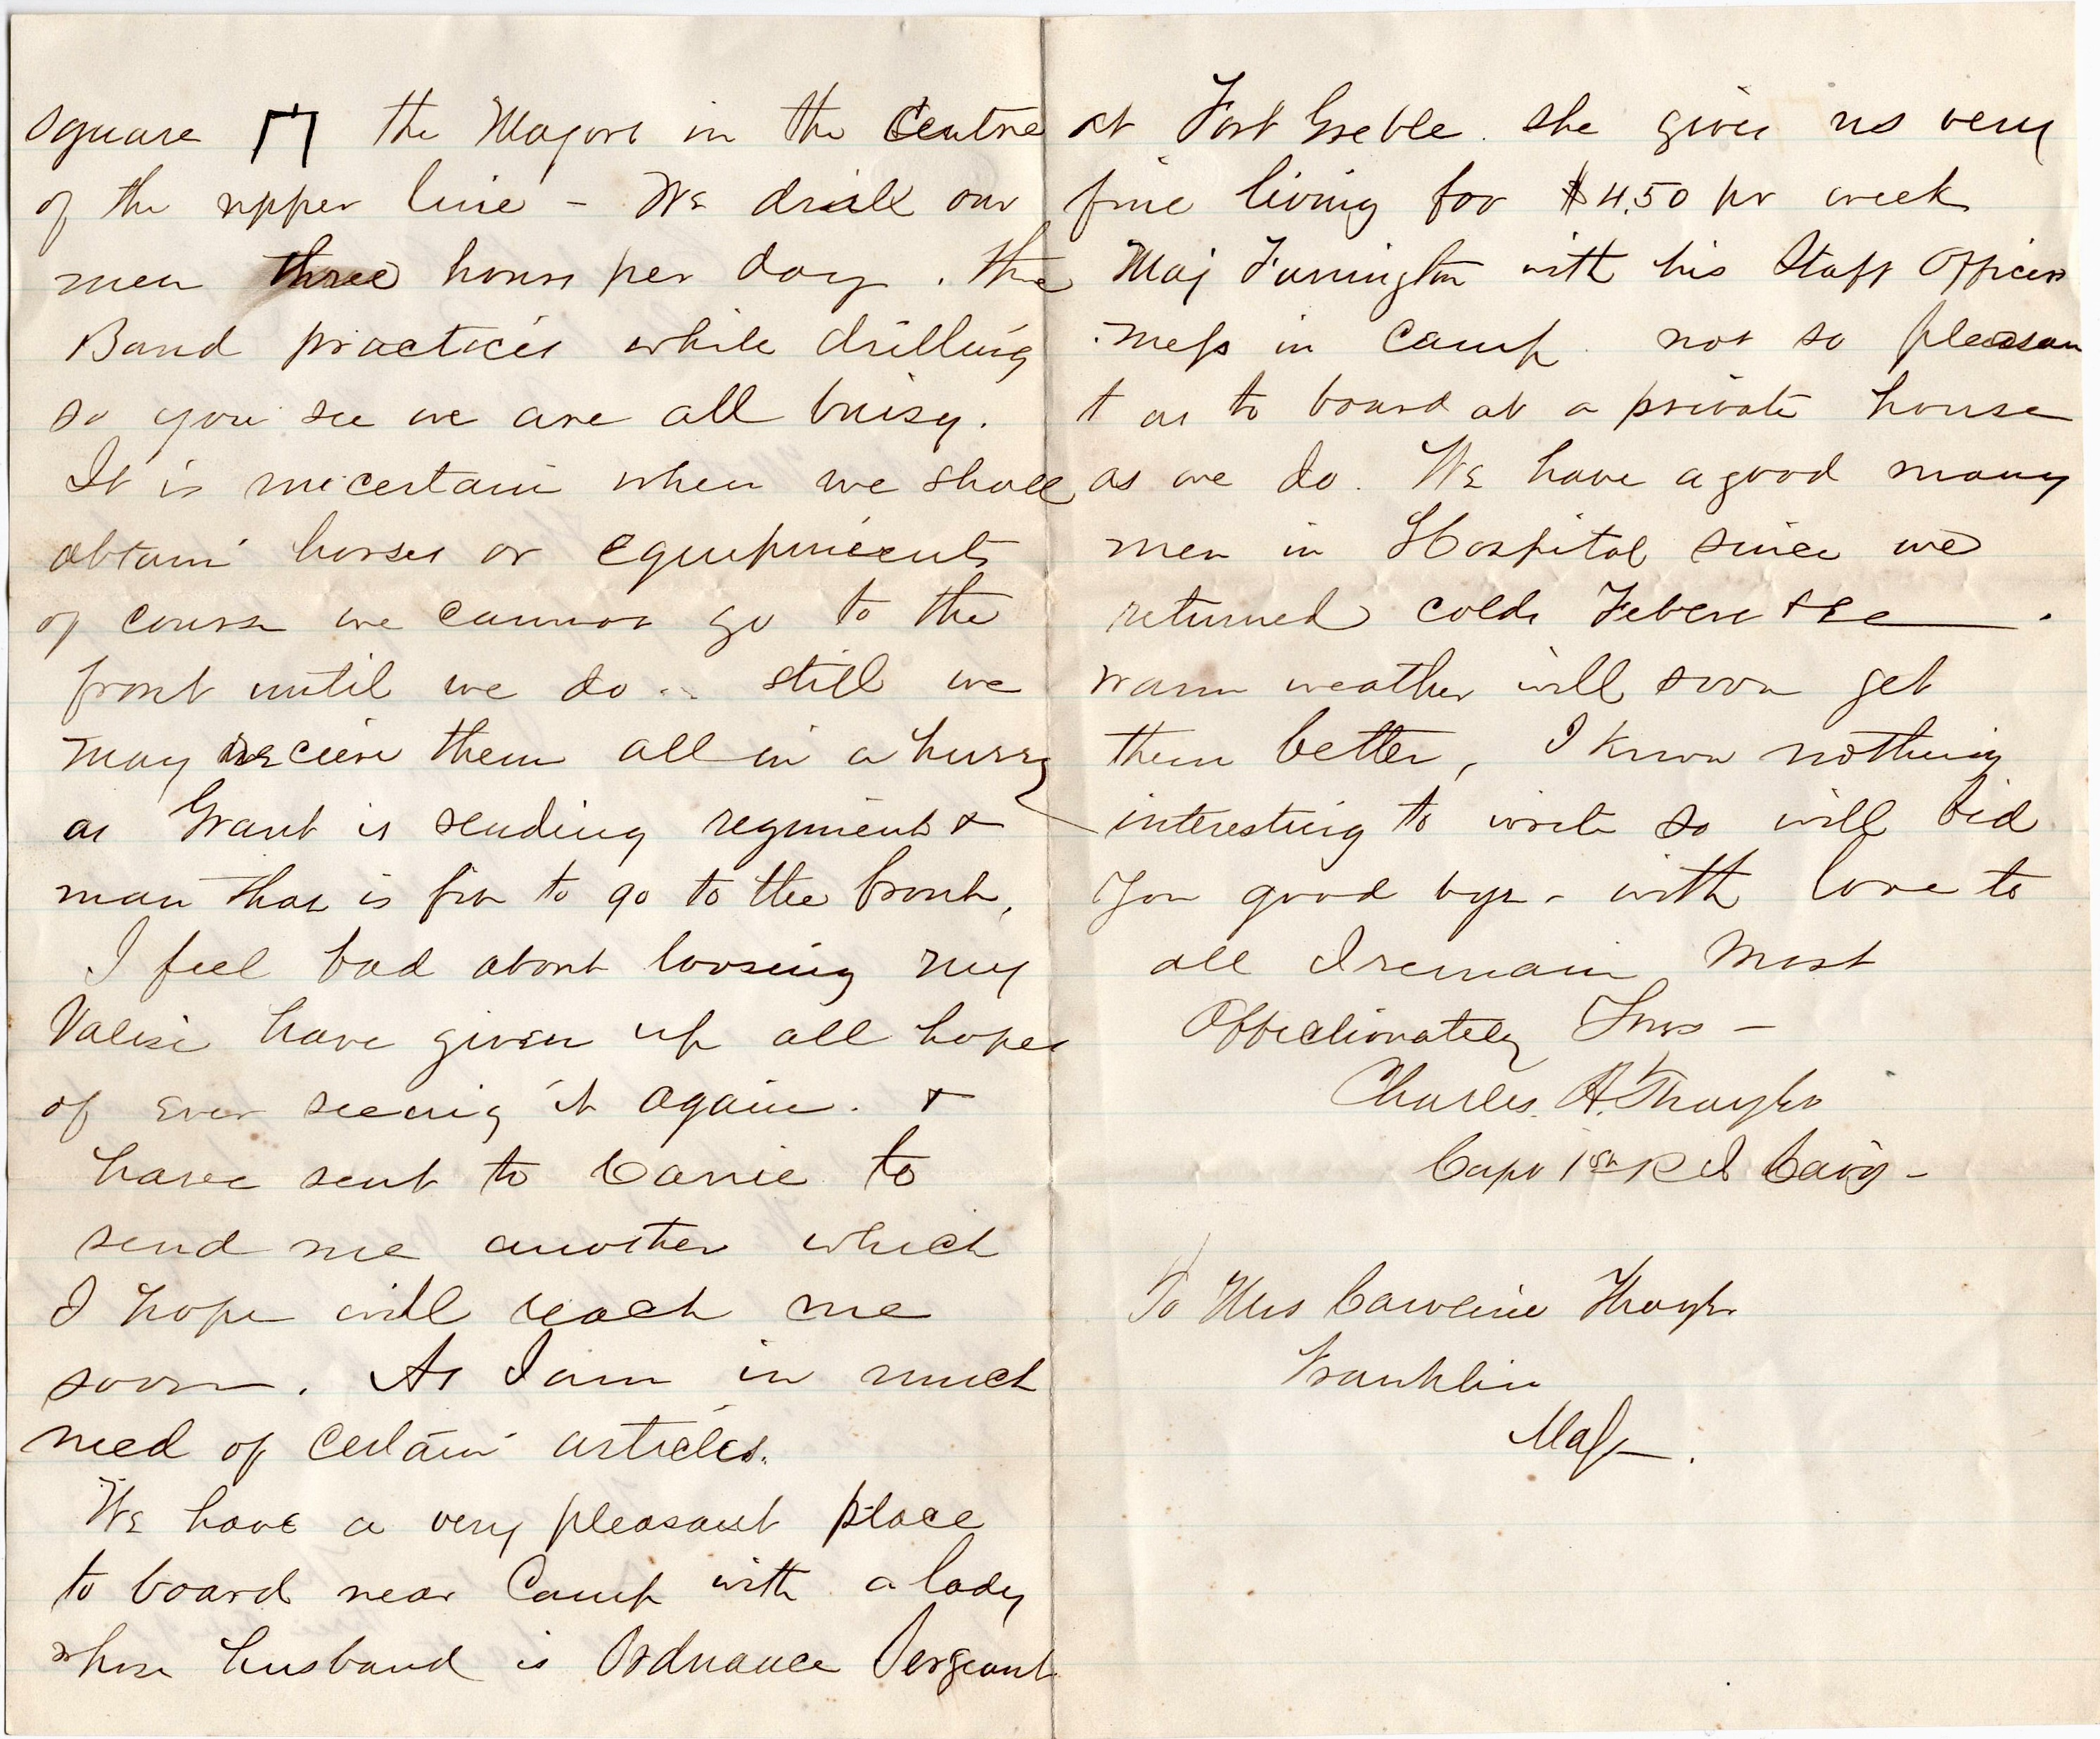 square the Majors in the Centre
of the upper line - We drill our
men three hours per day. the
Band practices while drilling
so you see we are all buisy.
It is uncertain when we shall
obtain horses or equipments
of course we cannot go to the
front until we do.. still we
may recieve them all in a hurry
as Grant is sending regiment &
man that is fit to go to the front,
I feel bad about loosing my
Valise have given up all hopes
of ever seeing it again. &
have sent to Carrie to
send me another which
I hope will reach me
soon. As I am in much
need of certain articles.
We have a very pleasant place
to board near Camp with a lady
whose husband is Ordnance Sergeant
at Fort Greble. she gives us very
fine living for $4.50 pr week
Maj Farrington with his Staff Officers
mess in Camp. not so pleasan
t as to board at a private house
as we do. We have a good many
men in Hospital since we
returned colds Fevers &c.
warm weather will soon get
them better, I know nothing
interesting to write so will bid
you good bye - with love to
all I remain Most
Affectionately Yours -
Charles. A. Thayer
Capt 1st R I Cavy -
To Mrs Caroline Thayer
Franklin
Mass.